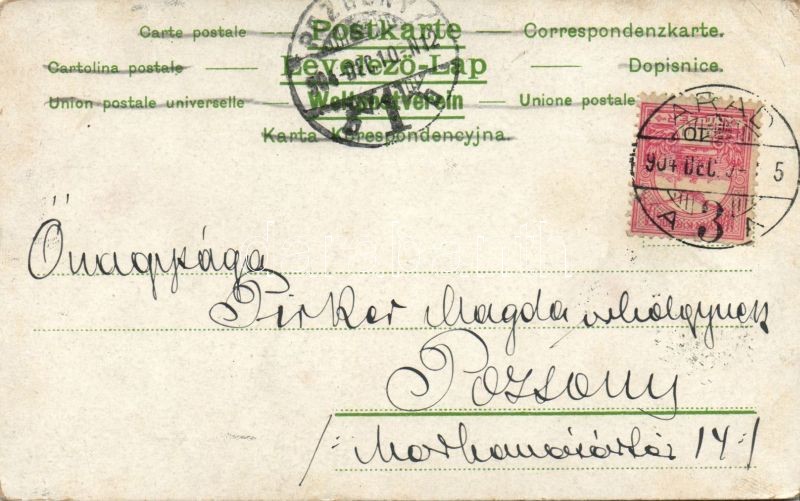 Carte postale Postkarte Correspondenzkarte.
Cartolina postale Levelező-Lap Dopisnice.
Union postale universelle Weltpostverein Unione postale
Karta Korespondencyjna.
POZSONY
904 DEC. 10 - N12
1
ARAD
904 DEC. 5
A 3 A
10
Őnagysága
Pirker Magda
Pozsony
14